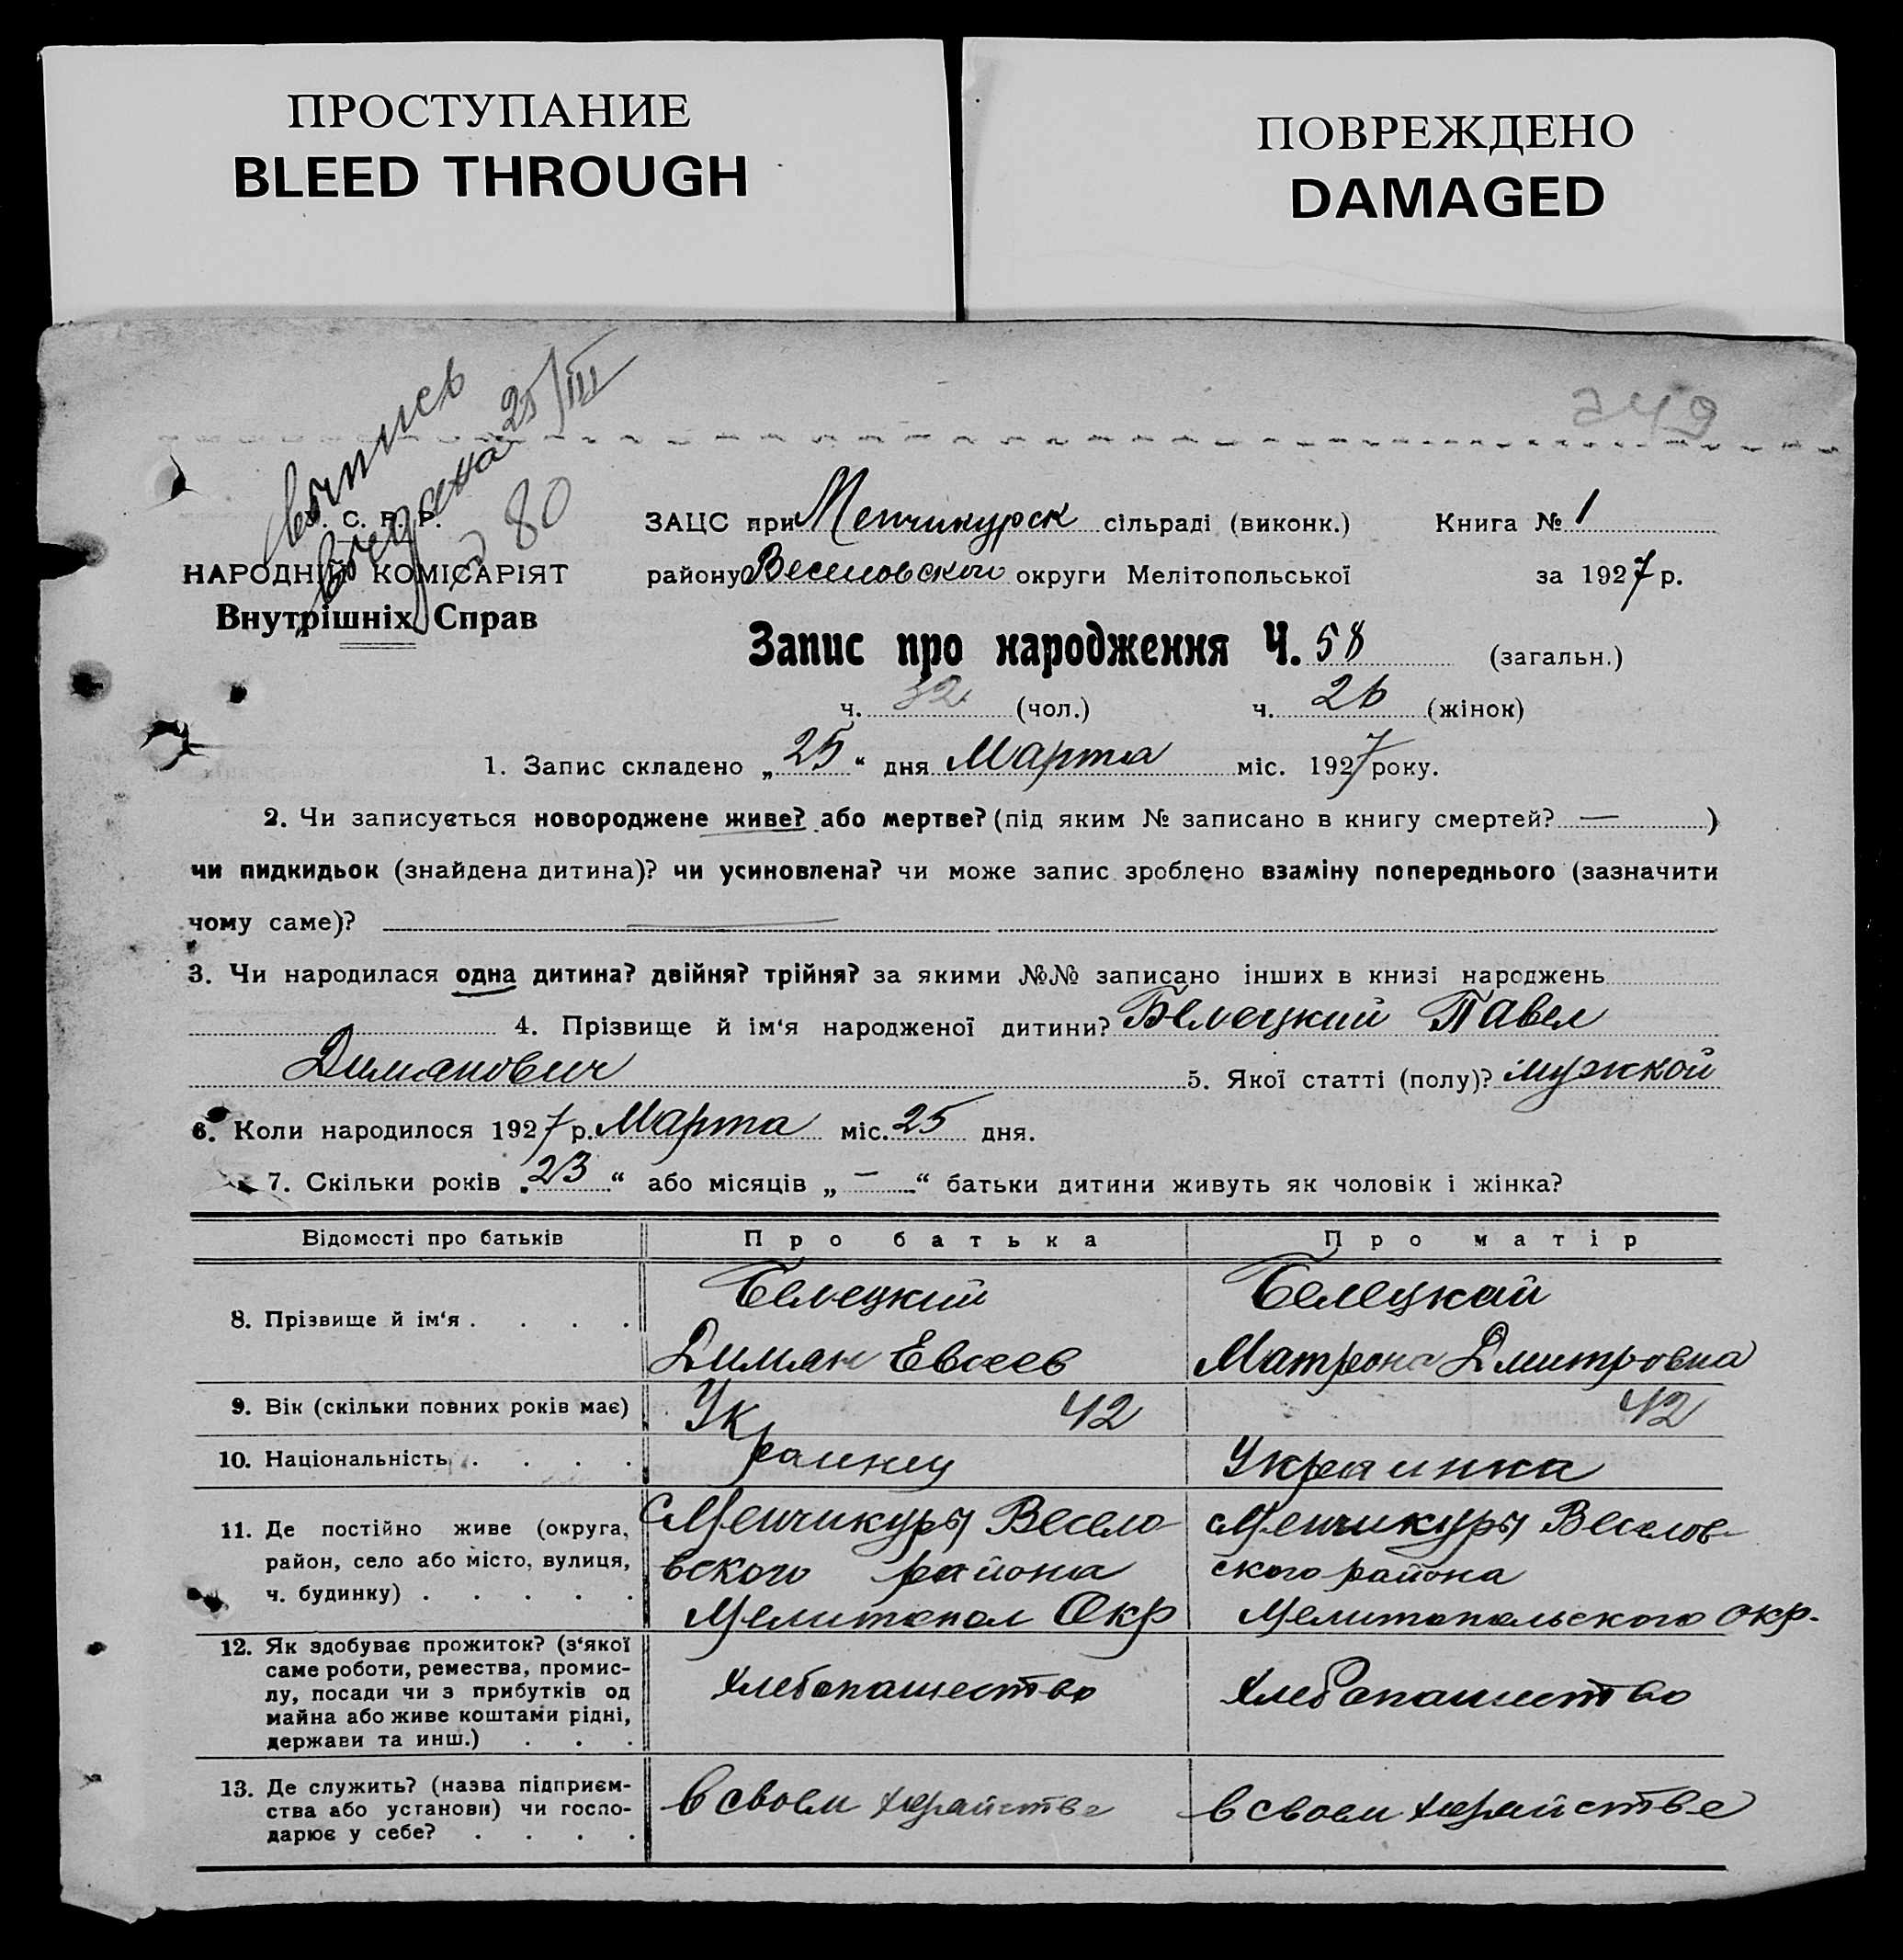 ПРОСТУПАНИЕ
BLEED THROUGH
ПОВРЕЖДЕНО
DAMAGED
249
Выпись
выдана 25/III
80
У. С. Р. Р.
НАРОДНІЙ КОМІСАРІЯТ
Внутрішніх Справ
ЗАЦС при Менчикурск сільраді (виконк.) Книга № 1
району Веселовском округи Мелітопольської за 1927 р.
Запис про народження Ч. 58 (загальн.)
ч. 32 (чол.) ч. 26 (жінок)
1. Запис складено „25“ дня Марта міс. 1927 року.
2. Чи записується новороджене живе? або мертве? (під яким № записано в книгу смертей? — )
чи пидкидьок (знайдена дитина)? чи усиновлена? чи може запис зроблено взаміну попереднього (зазначити
чому саме)? —
3. Чи народилася одна дитина? двійня? трійня? за якими №№ записано інших в книзі народжень
4. Прізвище й ім‘я народженої дитини? Белецкий Павел
Димянович 5. Якої статті (полу)? мужской
6. Коли народилося 1927 р. Марта міс. 25 дня.
7. Скільки років „23“ або місяців „—“ батьки дитини живуть як чоловік і жінка?
Відомості про батьків Про батька Про матір
8. Прізвище й ім‘я . . . . Белецкий Белецкай
Димян Евсеев Матрона Дмитровна
9. Вік (скільки повних років має) 42 42
10. Національність . . . . Украинец Украинка
11. Де постійно живе (округа, Менчикуры Весело- Менчикуры Веселов-
район, село або місто, вулиця, вского района ского района
ч. будинку) . . . . . Мелитопол Окр Мелитопольского окр.
12. Як здобуває прожиток? (з‘якої
саме роботи, ремества, промис-
лу, посади чи з прибутків од хлебопашество хлебопашество
майна або живе коштами рідні,
держави та инш.) . . .
13. Де служить? (назва підприєм-
ства або установи) чи госпо- в своем хозяйстве в своем хозяйстве
дарює у себе? . . . .